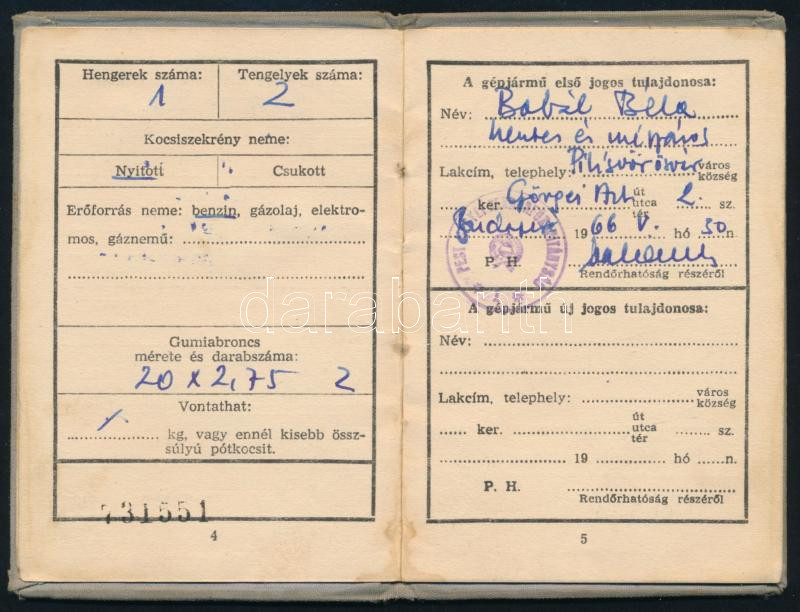 Hengerek száma: Tengelyek száma:
1 2
Kocsiszekrény neme:
Nyitott Csukott
Erőforrás neme: benzin, gázolaj, elektro-
mos, gáznemű:
Gumiabroncs
mérete és darabszáma:
20 x 2,75 2
Vontathat:
kg, vagy ennél kisebb össz-
súlyú pótkocsit.
731551
4
A gépjármű első jogos tulajdonosa:
Név: Babál Béla
hentes és mészáros
Lakcím, telephely: Pilisvörösvár város
község
ker. Görgei út
utca 2. sz.
tér
Budapest 1966 V. hó 30.n.
P. H.
Rendőrhatóság részéről
A gépjármű új jogos tulajdonosa:
Név:
Lakcím, telephely: város
község
ker. út
utca sz.
tér
19 hó n.
P. H.
Rendőrhatóság részéről
5
darabanth